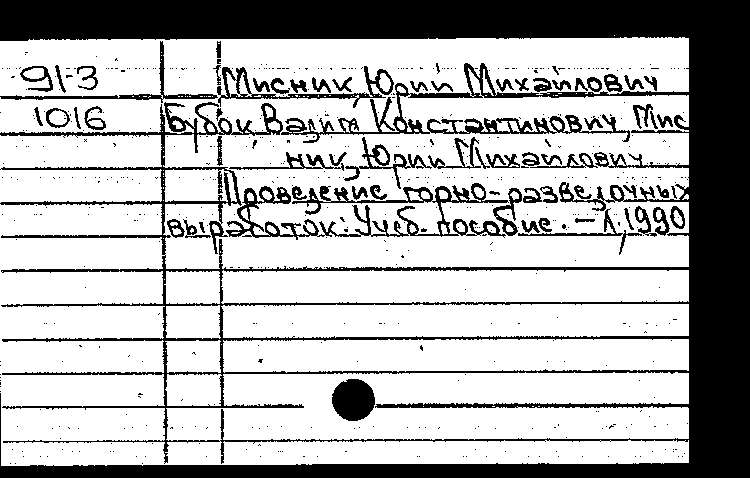 91-3 Мисник Юрий Михайлович
1016 Бубок Вадим Константинович, Мис
ник, Юрий Михайлович.
Проведение горно-разведочных
выработок: Учеб. пособие. – Л., 1990